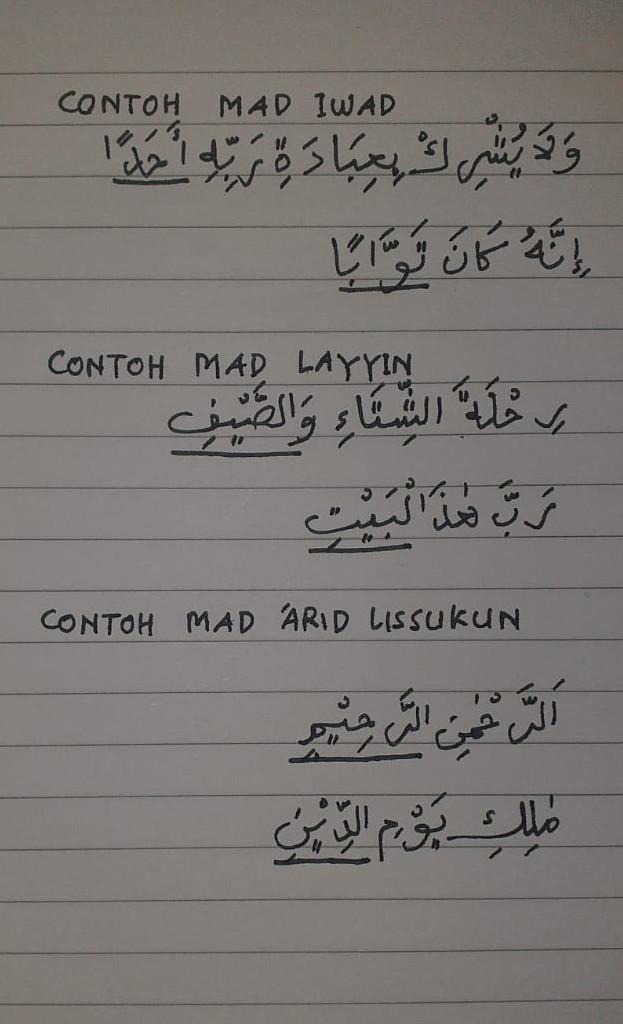 CONTOH MAD IWAD
وَلَا يُشْرِكْ بِعِبَادَةِ رَبِّهِ أَحَدًا
إِنَّهُ كَانَ تَوَّابًا
CONTOH MAD LAYYIN
رِحْلَةَ الشِّتَاءِ وَالصَّيْفِ
رَبَّ هٰذَا الْبَيْتِ
CONTOH MAD 'ARID LISSUKUN
اَلرَّحْمٰنِ الرَّحِيْمِ
مٰلِكِ يَوْمِ الدِّيْنِ